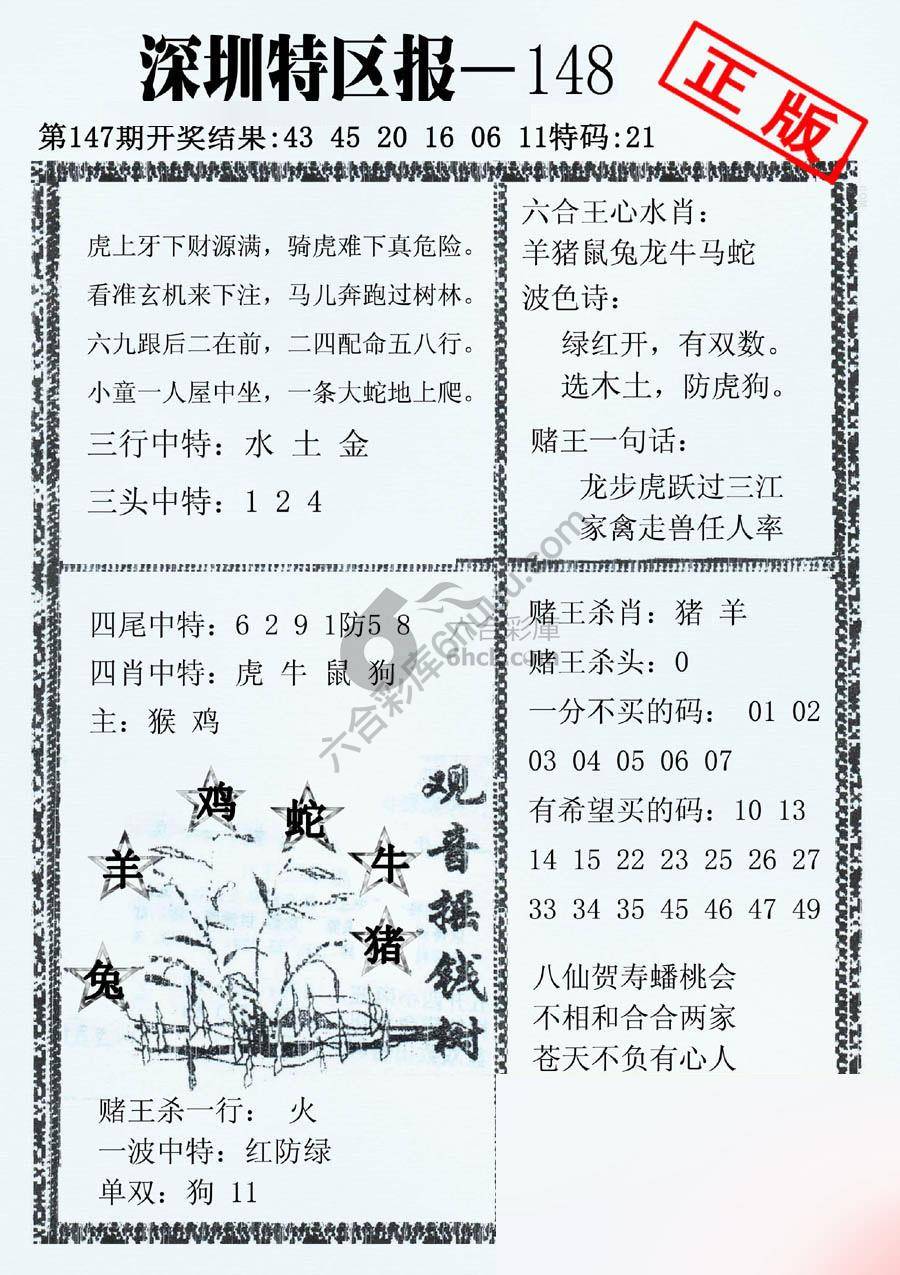 深圳特区报—148
正版
第147期开奖结果:43 45 20 16 06 11特码:21
虎上牙下财源满，骑虎难下真危险。
看准玄机来下注，马儿奔跑过树林。
六九跟后二在前，二四配命五八行。
小童一人屋中坐，一条大蛇地上爬。
三行中特：水 土 金
三头中特：1 2 4
六合王心水肖：
羊猪鼠兔龙牛马蛇
波色诗：
绿红开，有双数。
选木土，防虎狗。
赌王一句话：
龙步虎跃过三江
家禽走兽任人率
四尾中特：6 2 9 1防5 8
四肖中特：虎 牛 鼠 狗
主：猴 鸡
鸡
蛇
羊
牛
猪
兔
观音摇钱树
赌王杀一行： 火
一波中特：红防绿
单双：狗 11
赌王杀肖：猪 羊
赌王杀头：0
一分不买的码： 01 02
03 04 05 06 07
有希望买的码：10 13
14 15 22 23 25 26 27
33 34 35 45 46 47 49
八仙贺寿蟠桃会
不相和合合两家
苍天不负有心人
六合彩库
6hck.com
六合彩库6htutu.com